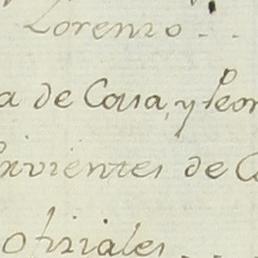 Lorenzo - -
a de Casa, y Peon
rvientes de C
Ofiziales - -